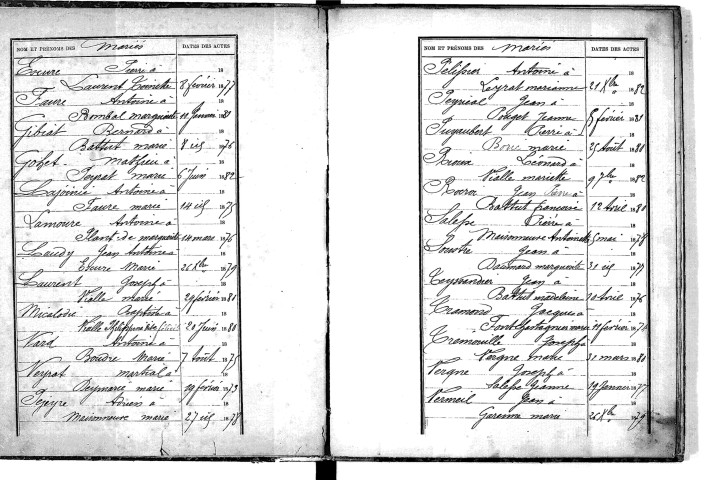 NOM ET PRÉNOMS DES Mariés DATES DES ACTES
Eveure Pierre à 18
Laurent Toinette 8 février 1877
Faure Antoine à 18
Bombal marguerite 11 Janvier 1881
Gibiat Bernard à 18
Battut marie 8 1876
Gohet Mathieu à 18
Peyrat marie 6 Juin 1882
Lajoinie Antoine à 18
Faure marie 14 1875
Lamoure Antoine à 18
Plantade marguerite 14 mars 1876
Laudy Jean Antoine à 18
Eveure Marie 26 Xbre 1879
Laurent Joseph à 18
Vialle marie 29 février 1880
Micaloru Baptiste à 18
Vialle Philippine 20 Juin 1880
Nard Antoine à 18
Boudre Marie 7 Août 1875
Neyrat martial à 18
Deymarie marie 19 février 1873
Peyre Adrien à 18
Maisonneuve marie 27 1878
NOM ET PRÉNOMS DES Mariés DATES DES ACTES
Pelissier Antoine à 18
Leyrat marianne 21 Xbre 1882
Peyrial Jean à 18
Pouget Jeanne 8 février 1881
Puyaubert Pierre à 18
Borie marie 25 Août 1880
Roux Léonard à 18
Vialle mariette 9 7bre 1882
Rouve Jean à 18
Battut françoise 12 Avril 1880
Salesse Pierre à 18
Maisonneuve Antoinette 5 mai 1878
Soustre Jean à 18
Daumard marguerite 31 1877
Teyssandier Jean à 18
Battut madeleine 10 Avril 1876
Tramond Jacques à 18
Font Gastagnes marie 11 février 1876
Tremouille Joseph à 18
Vergne marie 31 mars 1880
Vergne Joseph à 18
Salesse Jeanne 19 Janvier 1877
Vermeil Jean à 18
Garenne marie 26 Xbre 1879